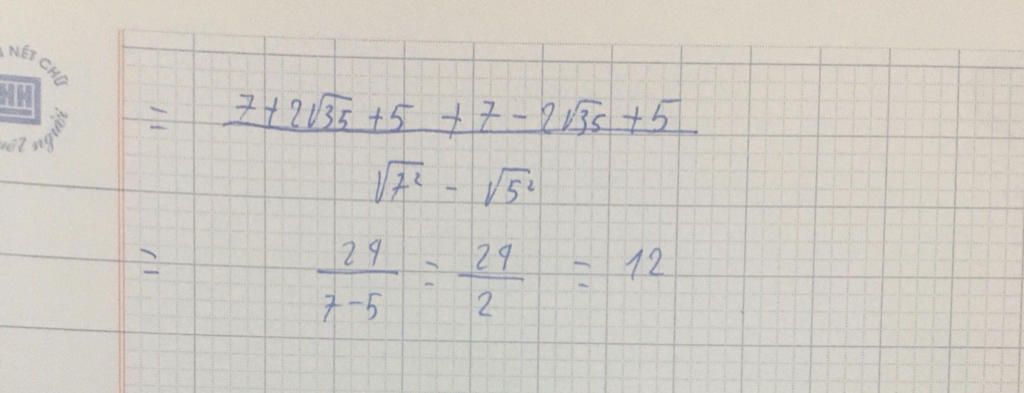 NÉT CHỮ
HH
người
= \frac{7 + 2\sqrt{35} + 5 + 7 - 2\sqrt{35} + 5}{\sqrt{7^2} - \sqrt{5^2}}
= \frac{24}{7-5} = \frac{24}{2} = 12